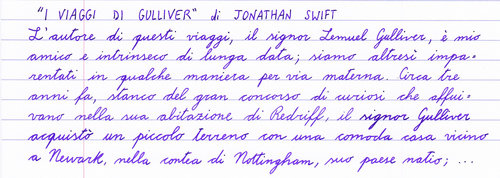 "I VIAGGI DI GULLIVER" di JONATHAN SWIFT
L'autore di questi viaggi, il signor Lemuel Gulliver, è mio
amico e intrinseco di lunga data; siamo altresì impa-
rentati in qualche maniera per via materna. Circa tre
anni fa, stanco del gran concorso di curiosi che afflui-
vano nella sua abitazione di Redriff, il signor Gulliver
acquistò un piccolo terreno con una comoda casa vicino
a Newark, nella contea di Nottingham, suo paese natio; ...